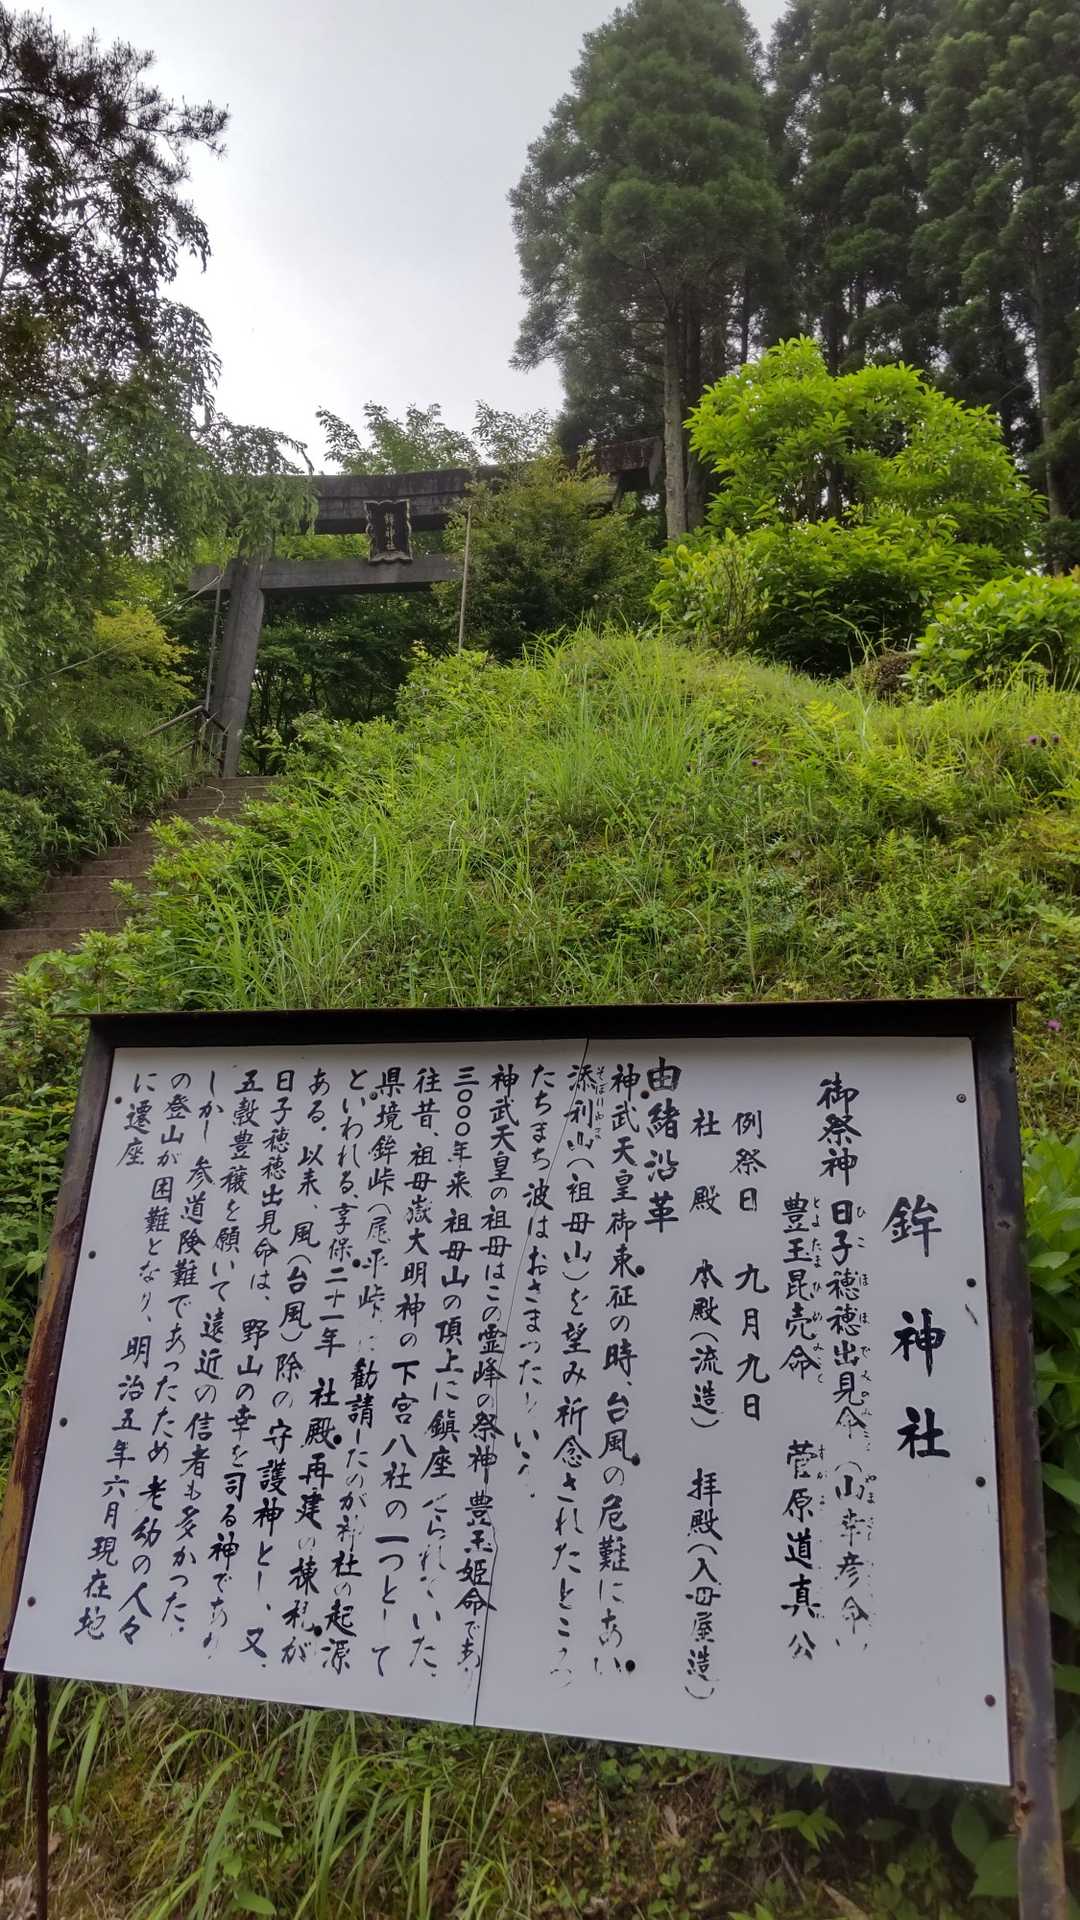 鉾神社
鉾神社
御祭神 日子穂穂出見命(山幸彦命)
ひこほほでみのみこと やまさち
豊玉昆売命 菅原道真公
とよたまひめみこと すがわら
例祭日 九月九日
社殿 本殿(流造) 拝殿(入母屋造)
由緒沿革
神武天皇御東征の時、台風の危難にあい
添利山(祖母山)を望み祈念されたところ
そほりやま
たちまち波はおさまったという。
神武天皇の祖母はこの霊峰の祭神豊玉姫命であり
三〇〇〇年来祖母山の頂上に鎮座せられていた。
往昔、祖母嶽大明神の下宮八社の一つとして
県境鉾峠(尾平峠)に勧請したのが神社の起源
といわれる。享保二十一年社殿再建の棟札が
ある。以来、風(台風)除の守護神とし、又、
日子穂穂出見命は、野山の幸を司る神であり
五穀豊穣を願いて遠近の信者も多かった。
しかし参道険難であったため老幼の人々
の登山が困難となり、明治五年六月現在地
に遷座